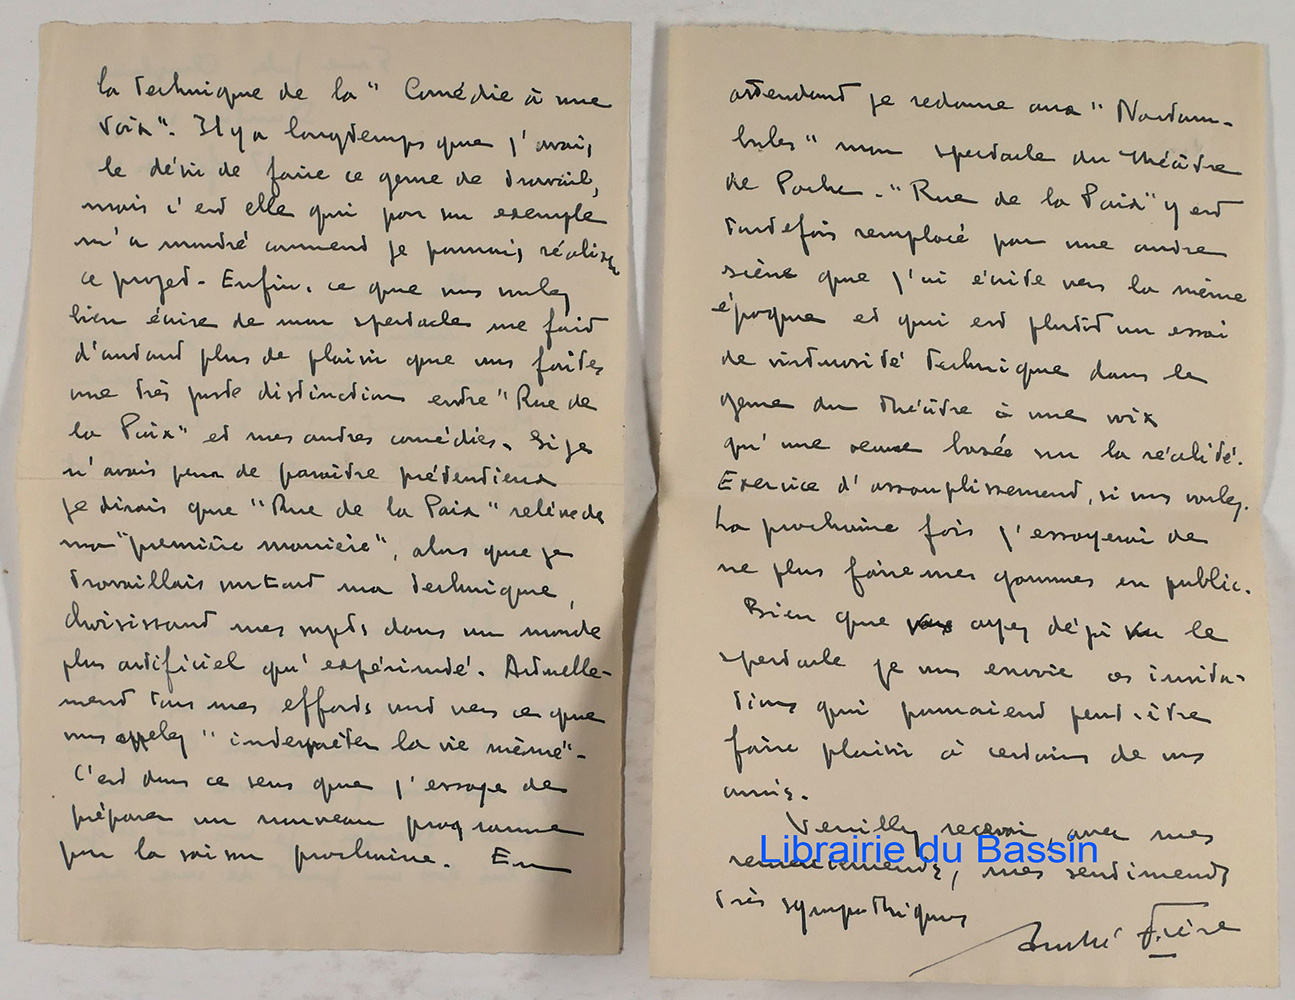 la technique de la "Comédie à une
voix". Il y a longtemps que j'avais
le désir de faire ce genre de travail,
mais c'est elle qui par son exemple
m'a montré comment je pouvais réaliser
ce projet. Enfin, ce que vous voulez
bien écrire de mon spectacle me fait
d'autant plus de plaisir que vous faites
une très juste distinction entre "Rue de
la Paix" et mes autres comédies. Si je
n'avais peur de paraître prétentieux
je dirais que "Rue de la Paix" relève de
ma "première manière", alors que je
travaillais surtout ma technique,
choisissant mes sujets dans un monde
plus artificiel qu'expérimenté. Actuelle-
ment tous mes efforts vont vers ce que
vous appelez "interpréter la vie même".
C'est dans ce sens que j'essaye de
préparer un nouveau programme
pour la saison prochaine. En
attendant je redonne aux "Noctam-
bules" mon spectacle du théâtre
de Poche. "Rue de la Paix" y est
toutefois remplacé par une autre
scène que j'ai écrite vers la même
époque et qui est plutôt un essai
de virtuosité technique dans le
genre du théâtre à une voix
qu'une oeuvre basée sur la réalité.
Exercice d'assouplissement, si vous voulez.
La prochaine fois j'essayerai de
ne plus faire mes gammes en public.
Bien que vous ayez déjà vu le
spectacle je vous envoie ces invita-
tions qui pourraient peut-être
faire plaisir à certains de vos
amis.
Veuillez recevoir, avec mes
remerciements, mes sentiments
très sympathiques
André Frère
Librairie du Bassin